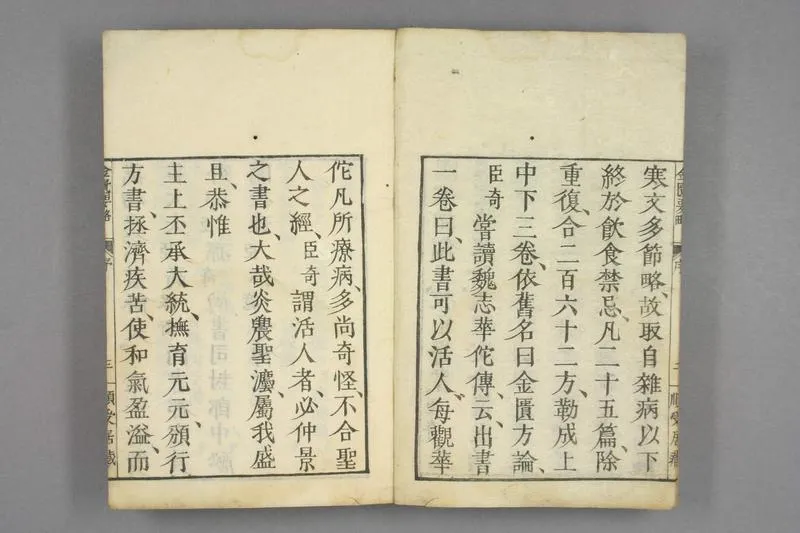 寒文多節略、故取自雜病以下
終於飲食禁忌、凡二十五篇、除
重復、合二百六十二方、勒成上
中下三卷、依舊名曰金匱方論、
臣奇嘗讀魏志華佗傳、云、出書
一卷曰、此書可以活人、每觀華
金匱要略 序 二 順受居藏
佗凡所療病、多尚奇怪、不合聖
人之經、臣奇謂活人者、必仲景
之書也、大哉炎農聖灋、屬我盛
旦、恭惟
主上丕承大統、撫育元元、頒行
方書、拯濟疾苦、使和氣盈溢、而
金匱要略 序 三 順受居藏